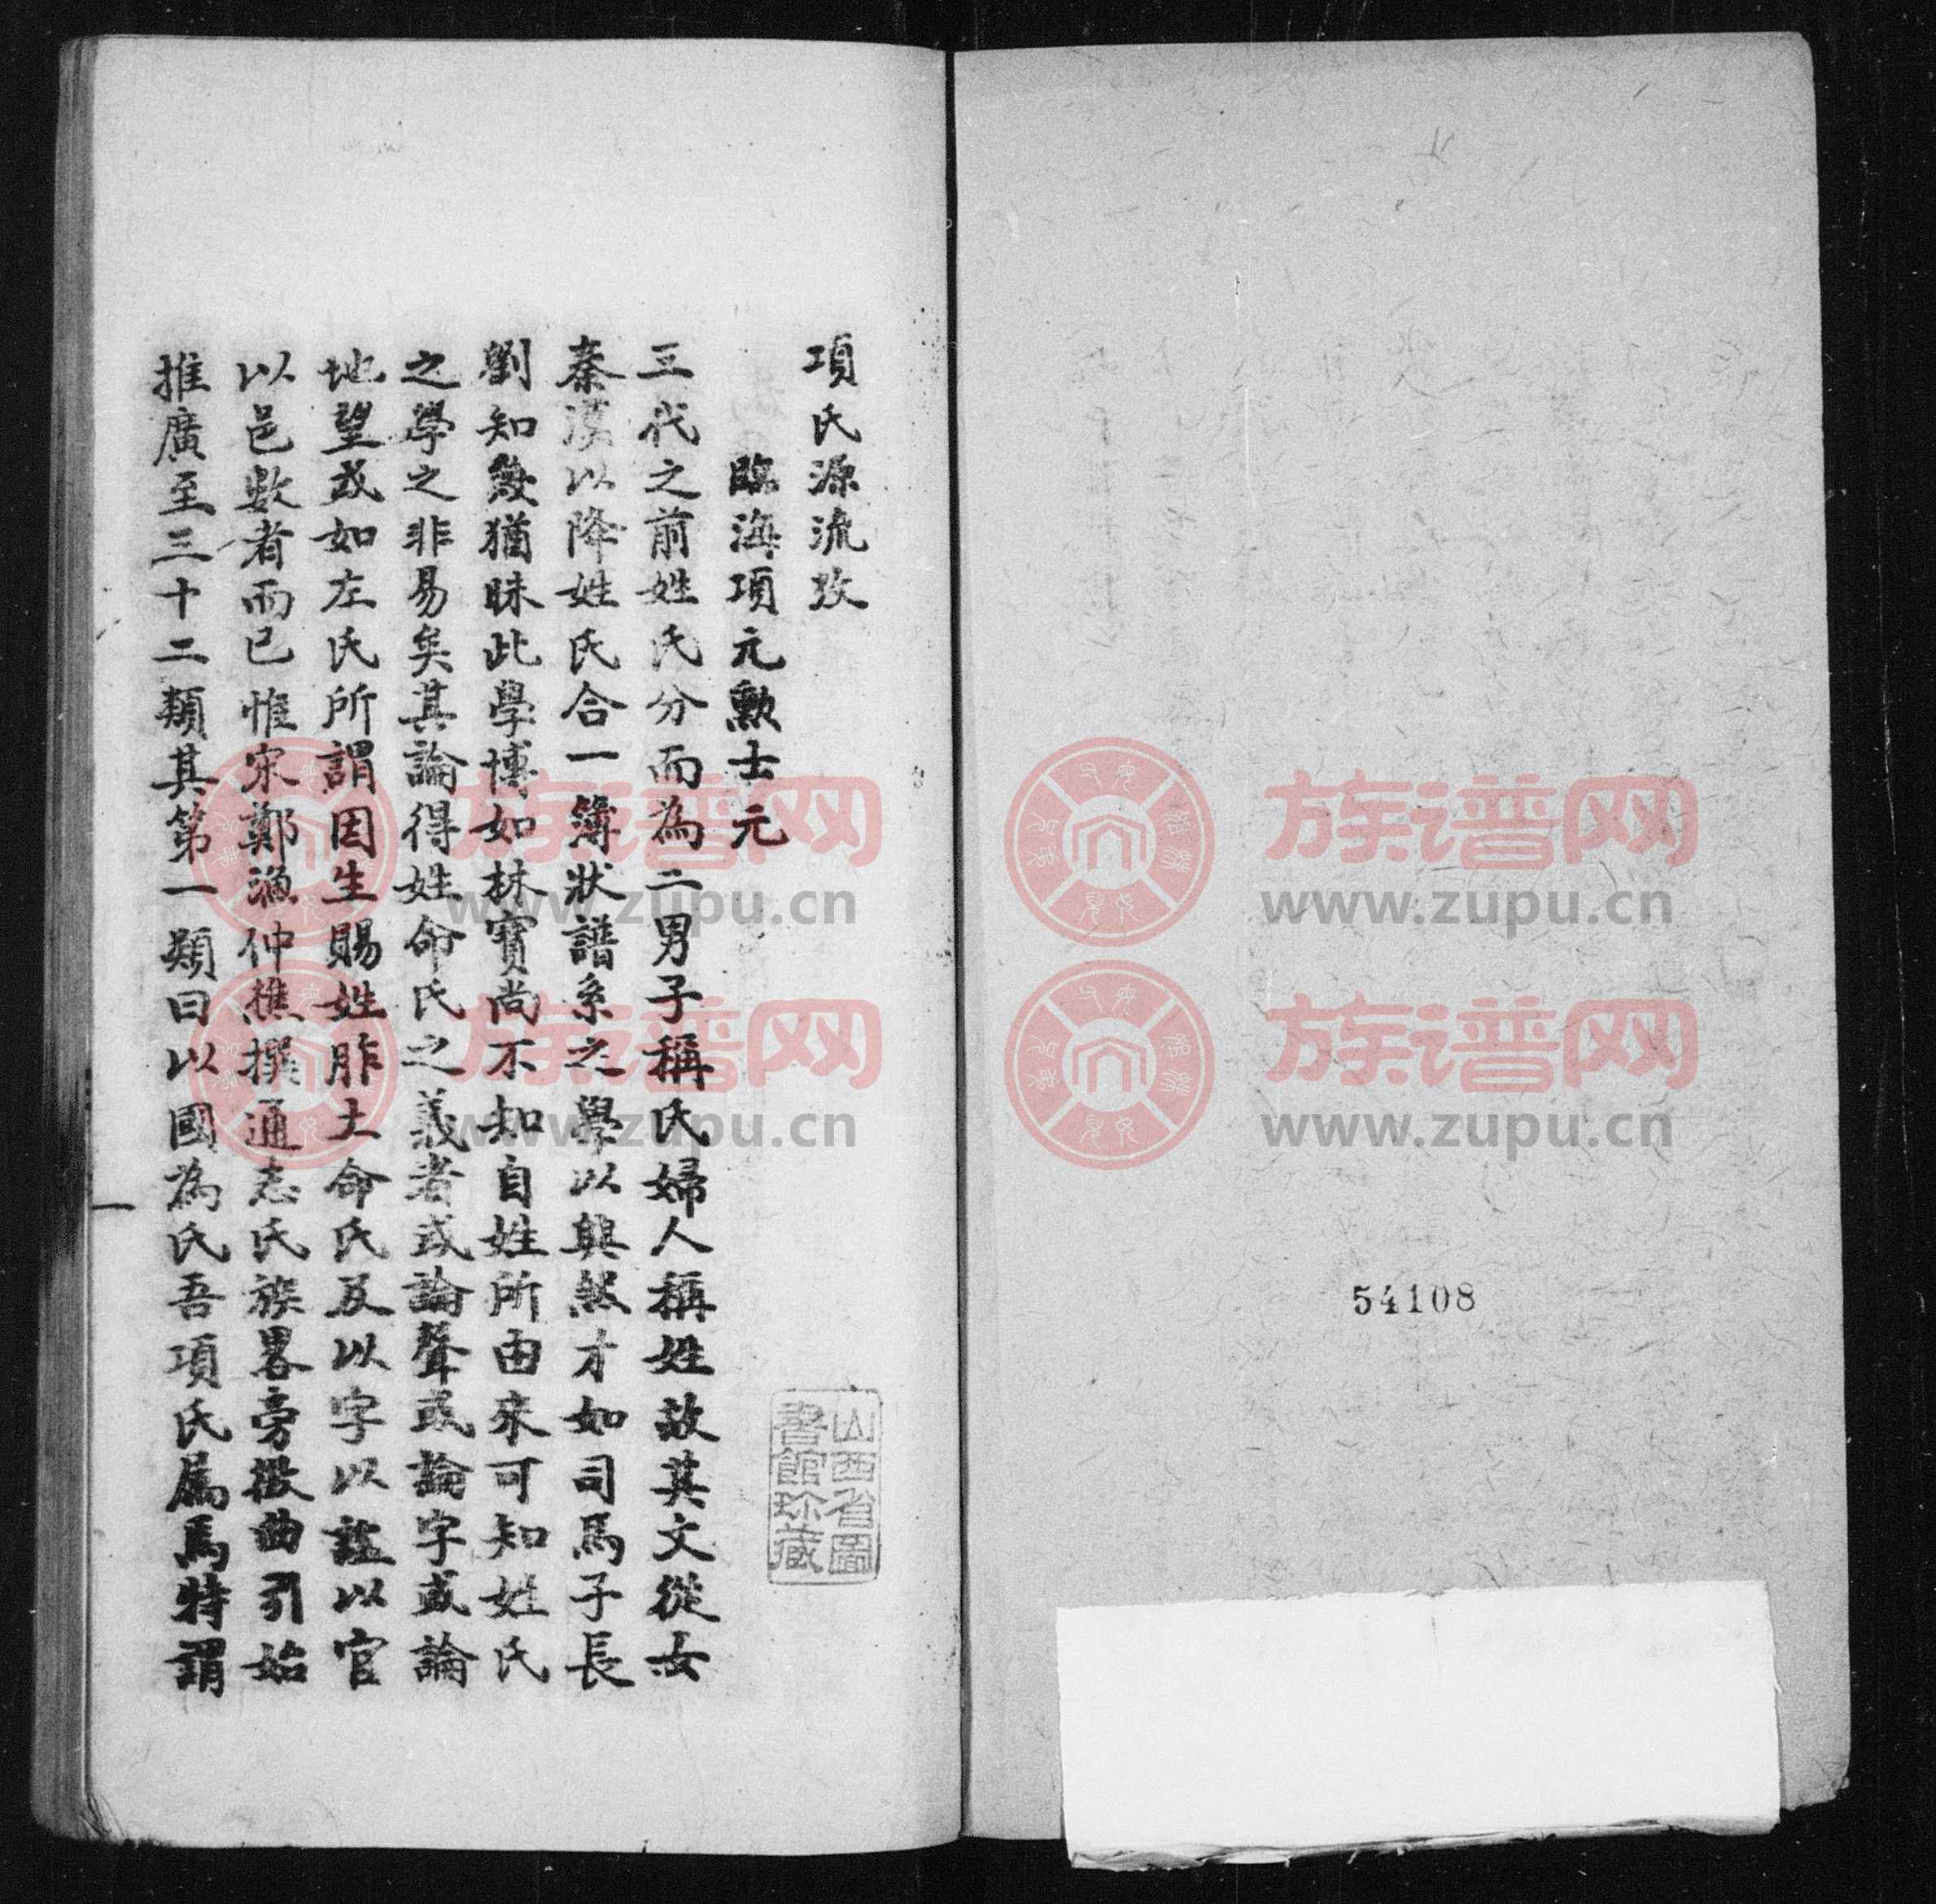 項氏源流攷
臨海項元勲士元
三代之前姓氏分而為二男子稱氏婦人稱姓故其文從女
秦漢以降姓氏合一簿狀譜系之學以興然才如司馬子長
劉知幾猶昧此學博如林寶尚不知自姓所由來可知姓氏
之學之非易矣其論得姓命氏之義者或論聲或論字或論
地望或如左氏所謂因生賜姓胙土命氏及以字以諡以官
以邑數者而已惟宋鄭漁仲樵撰通志氏族畧旁徵曲引始
推廣至三十二類其第一類曰以國為氏吾項氏屬焉特謂
一
山西省圖
書館珍藏
54108
族谱网
www.zupu.cn
族谱网
www.zupu.cn
族谱网
www.zupu.cn
族谱网
www.zupu.cn